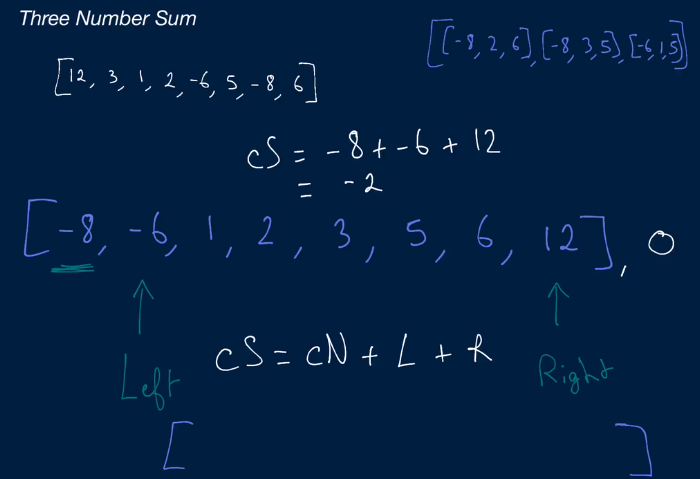 Three Number Sum
[[-8, 2, 6], [-8, 3, 5], [-6, 1, 5]]
[12, 3, 1, 2, -6, 5, -8, 6]
cS = -8 + -6 + 12
= -2
[-8, -6, 1, 2, 3, 5, 6, 12], 0
cS = cN + L + R
Left
Right
[ ]